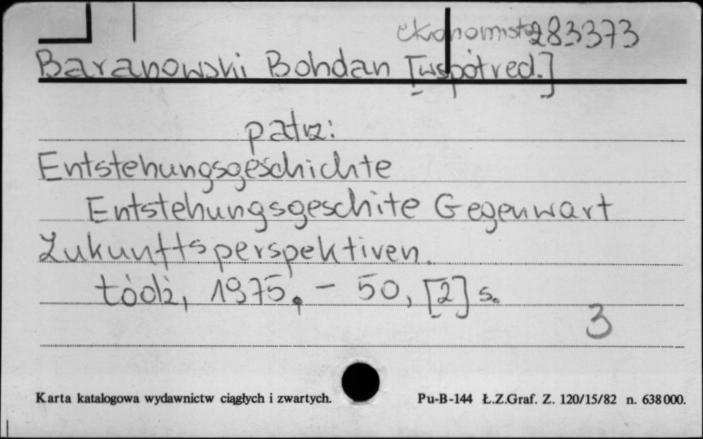 ekonomista 283373
Baranowski Bohdan [współred.]
patrz:
Entstehungsgeschichte
Entstehungsgeschite Gegenwart
Zukunftsperspektiven.
Łódź, 1975. – 50, [2] s.
3
Karta katalogowa wydawnictw ciągłych i zwartych. Pu-B-144 Ł.Z.Graf. Z. 120/15/82 n. 638000.